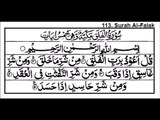 113. Surah Al-Falak
سُوْرَةُ الْفَلَقِ وَهِىَ خَمْسُ اٰيَاتٍ
بِسْمِ اللّٰهِ الرَّحْمٰنِ الرَّحِيْمِ
قُلْ اَعُوْذُ بِرَبِّ الْفَلَقِ مِنْ شَرِّ مَا خَلَقَ وَمِنْ شَرِّ
غَاسِقٍ اِذَا وَقَبَ وَمِنْ شَرِّ النَّفّٰثٰتِ فِى الْعُقَدِ
وَمِنْ شَرِّ حَاسِدٍ اِذَا حَسَدَ